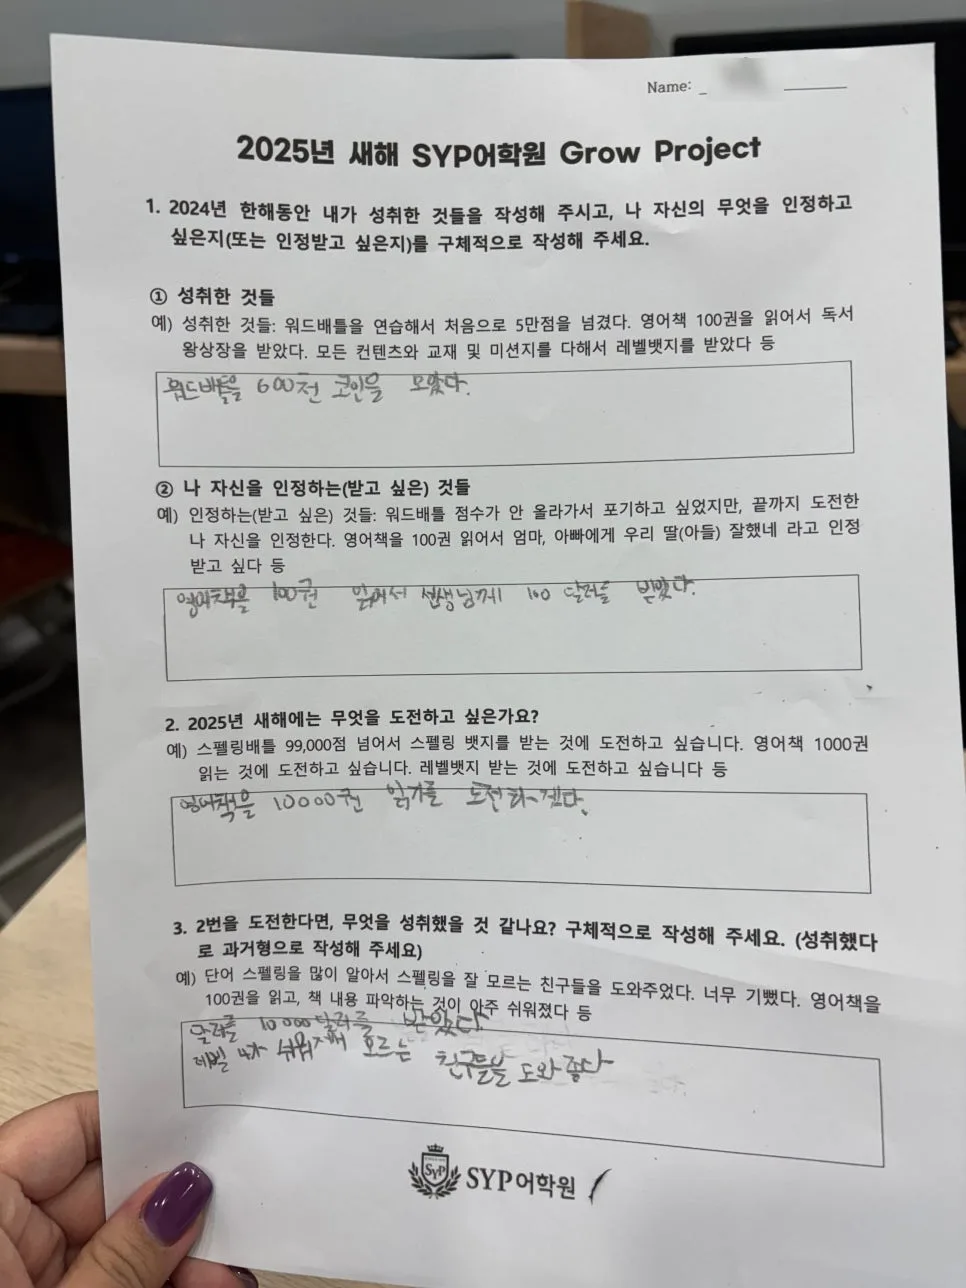 Name:
2025년 새해 SYP어학원 Grow Project
1. 2024년 한해동안 내가 성취한 것들을 작성해 주시고, 나 자신의 무엇을 인정하고
싶은지(또는 인정받고 싶은지)를 구체적으로 작성해 주세요.
① 성취한 것들
예) 성취한 것들: 워드배틀을 연습해서 처음으로 5만점을 넘겼다. 영어책 100권을 읽어서 독서
왕상장을 받았다. 모든 컨텐츠와 교재 및 미션지를 다해서 레벨뱃지를 받았다 등
워드배틀을 600전 코인을 모았다.
② 나 자신을 인정하는(받고 싶은) 것들
예) 인정하는(받고 싶은) 것들: 워드배틀 점수가 안 올라가서 포기하고 싶었지만, 끝까지 도전한
나 자신을 인정한다. 영어책을 100권 읽어서 엄마, 아빠에게 우리 딸(아들) 잘했네 라고 인정
받고 싶다 등
영어책을 100권 읽어서 선생님께 100 달러를 받았다.
2. 2025년 새해에는 무엇을 도전하고 싶은가요?
예) 스펠링배틀 99,000점 넘어서 스펠링 뱃지를 받는 것에 도전하고 싶습니다. 영어책 1000권
읽는 것에 도전하고 싶습니다. 레벨뱃지 받는 것에 도전하고 싶습니다 등
영어책을 10000권 읽기를 도전하겠다.
3. 2번을 도전한다면, 무엇을 성취했을 것 같나요? 구체적으로 작성해 주세요. (성취했다
로 과거형으로 작성해 주세요)
예) 단어 스펠링을 많이 알아서 스펠링을 잘 모르는 친구들을 도와주었다. 너무 기뻤다. 영어책을
100권을 읽고, 책 내용 파악하는 것이 아주 쉬워졌다 등
달러를 10000달러를 받았다
레벨 4가 쉬워져서 모르는 친구들을 도와줗다
SYP
SYP어학원